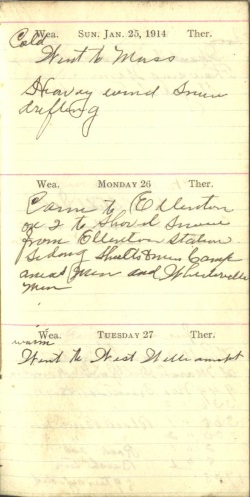 Wea. SUN. JAN. 25, 1914 Ther.
Cold
Went to Mass
Heavy wind Snow
drifting
Wea. MONDAY 26 Ther.
Came to Ollerton
on 2 to Shovel Snow
from Ollerton Station
Camp
Men and
Men
Wea. TUESDAY 27 Ther.
warm
Went to West Willeamspt